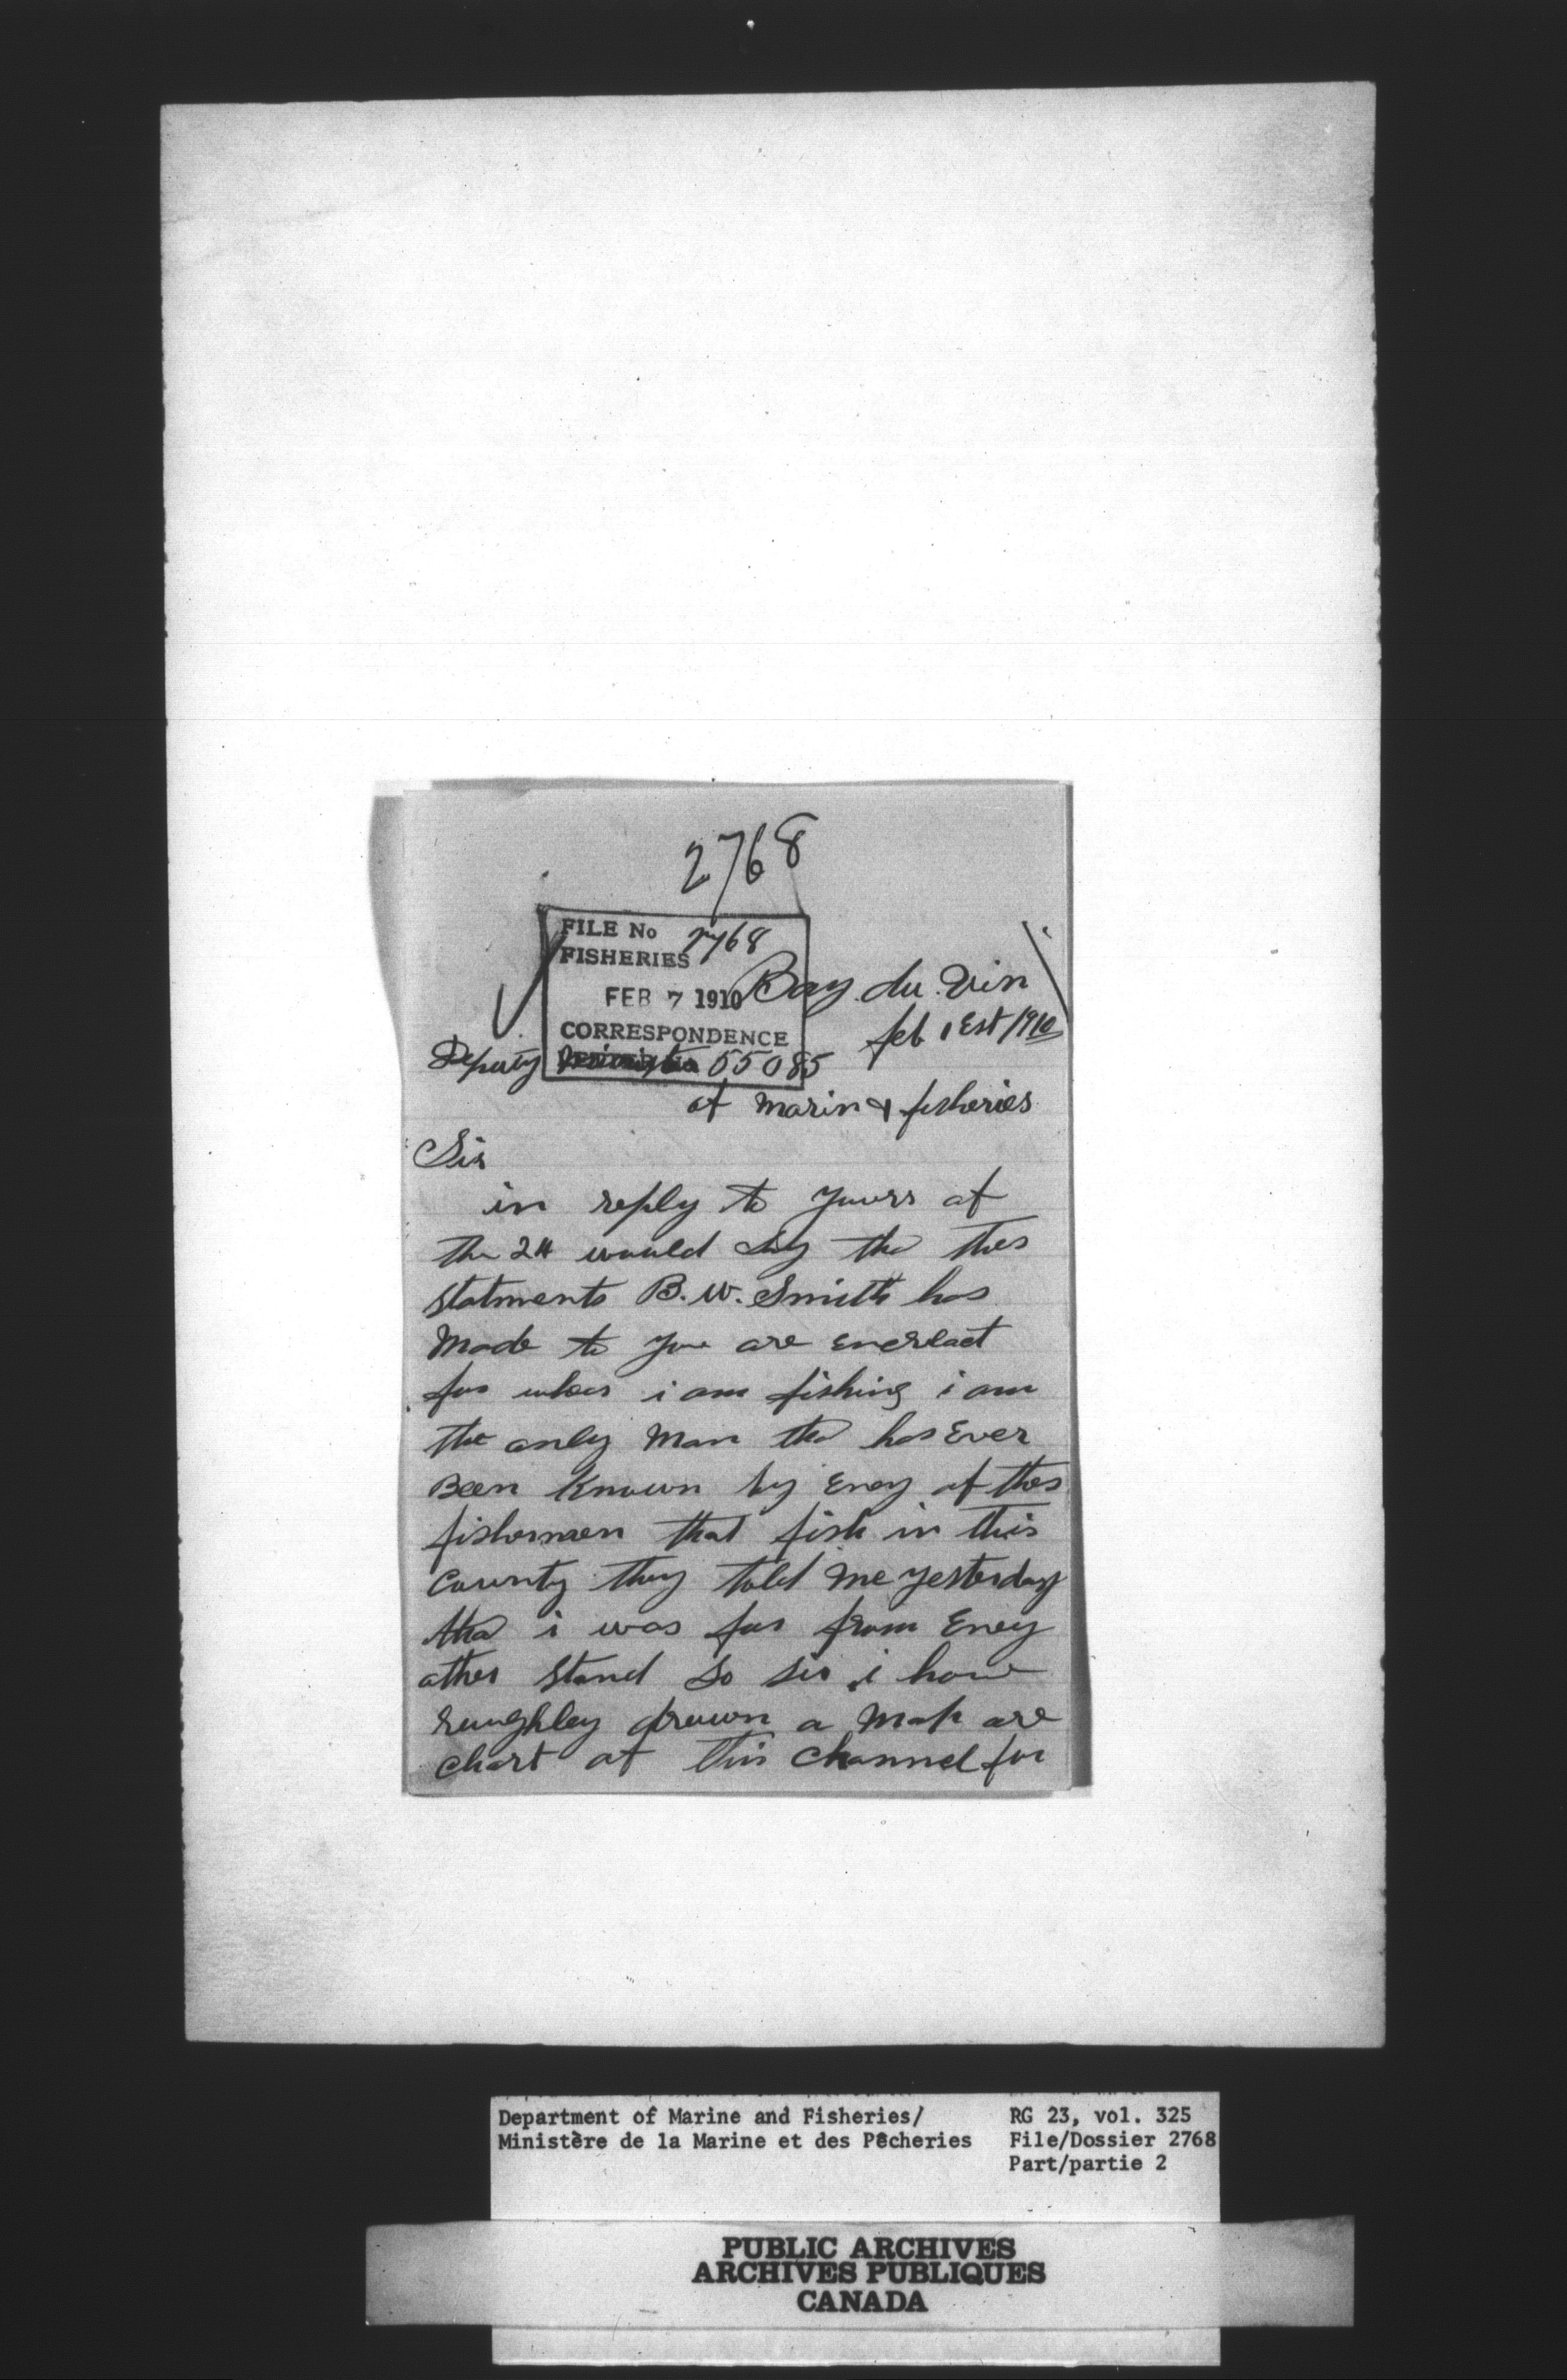 2768
FILE No 2768
FISHERIES
FEB 7 1910
CORRESPONDENCE
55085
Bay du Vin
feb 1 Est 1910
Deputy
of Marin & fisheries
Sir
in reply to yours of
the 24 would say tha thes
statments B. W. Smith has
Made to you are
for wher i am fishing i am
the only Man tha has Ever
Been Known by Eney of thes
fishermen that fish in this
County they told me yesterday
tha i was far from Eney
other stand so sir i have
roughley drawn a Map are
chart of this Channel for
Department of Marine and Fisheries/
Ministère de la Marine et des Pêcheries
RG 23, vol. 325
File/Dossier 2768
Part/partie 2
PUBLIC ARCHIVES
ARCHIVES PUBLIQUES
CANADA